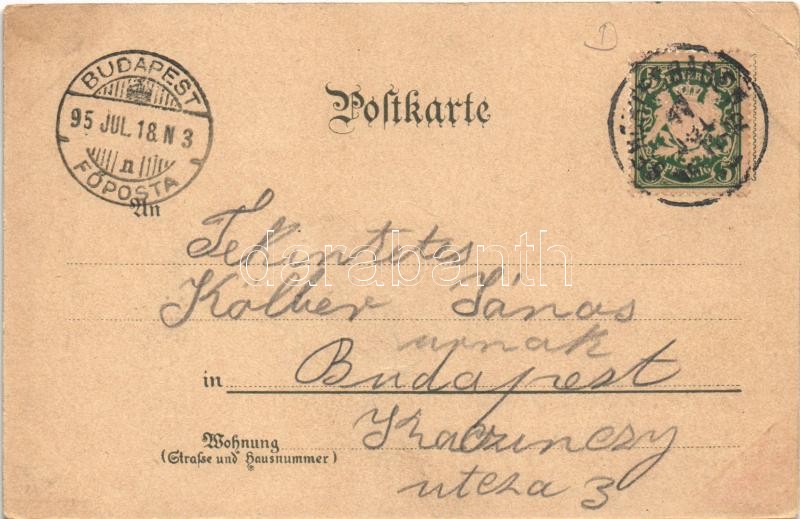 BUDAPEST
95 JUL. 18. N 3
n
FŐPOSTA
Postkarte
PFENNIG
An
Tekintetes
darabanth
Kolber János
urnak
in Budapest
Wohnung
(Straſse und Hausnummer)
Kazinczy
utcza 3